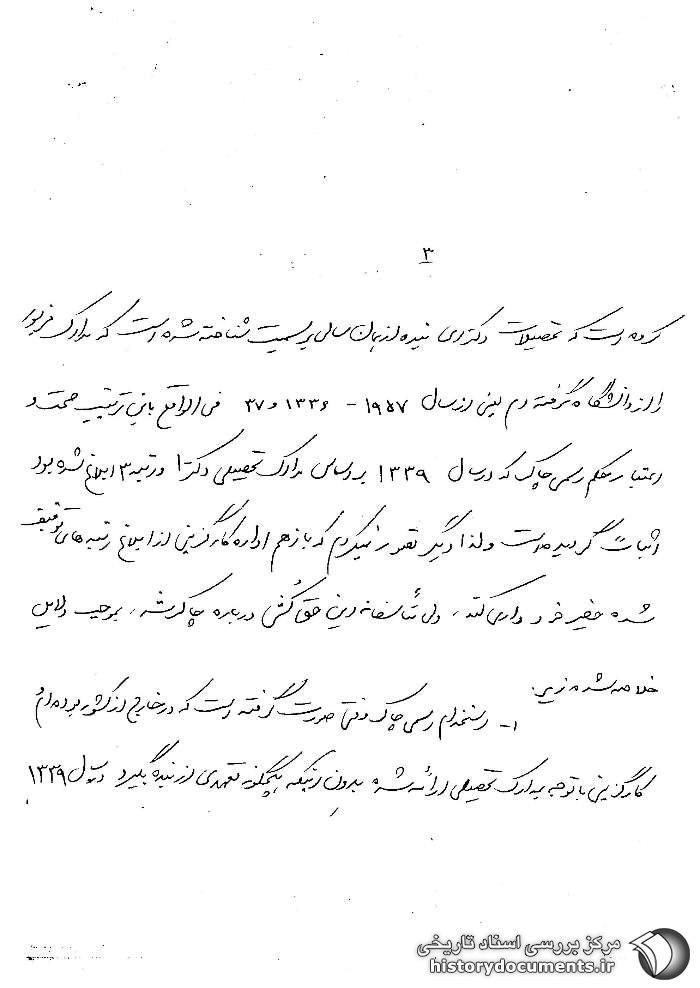 ۳
کرده است که تحصیلات دکترای بنده از همان سالی برسمیت شناخته شده است که مدارک مزبور
را از دانشگاه گرفته‌ام یعنی از سال ۱۹۵۷ - ۱۳۳۶ و ۳۷ فی‌الواقع باین ترتیب صحت و
اعتبار حکم رسمی چاکر که در سال ۱۳۳۹ بر اساس مدارک تحصیلی دکترا و رتبه ۳ ابلاغ شده بود
اثبات گردیده است و لذا دیگر تصور نمیکردم که باز هم اداره کارگزینی از ابلاغ رتبه‌های توقیف
شده حقیر خودداری کند، ولی متأسفانه این حق کشی درباره چاکر شد، بموجب دلایل
خلاصه شده زیر:
۱- استخدام رسمی چاکر وقتی صورت گرفته است که در خارج از کشور بوده‌ام و
کارگزینی با توجه بمدارک تحصیلی ارائه شده بدون اینکه هیچگونه تعهدی از بنده بگیرد در سال ۱۳۳۹
مرکز بررسی اسناد تاریخی
historydocuments.ir